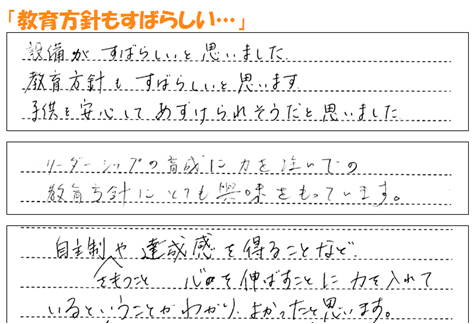 「教育方針もすばらしい…」
設備が すばらしいと思いました
教育方針も すばらしいと思います
子供を安心してあずけられそうだと思いました
リーダーシップの育成に力を注いでの
教育方針にとても興味をもっています。
自主制や達成感を得ることなど
をもつこと 心のを伸ばすことに力を入れて
いるということがわかり よかったと思います。